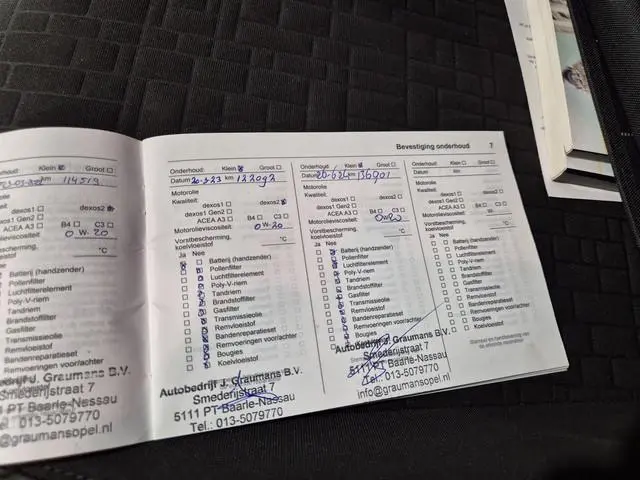 Bevestiging onderhoud 7
Onderhoud: Klein Groot
km 114519
dexos1 dexos2
dexos1 Gen2
ACEA A3 B4 C3
Motorolieviscositeit:
0 W- 20
Vorstbescherming,
koelvloeistof °C
Ja Nee
Batterij (handzender)
Pollenfilter
Luchtfilterelement
Poly-V-riem
Tandriem
Brandstoffilter
Gasfilter
Transmissieolie
Remvloeistof
Bandenreparatieset
Remvoeringen voor/achter
Bougies
Koelvloeistof
J. Graumans B.V.
Smederijstraat 7
5111 PT Baarle-Nassau
Tel.: 013-5079770
info@graumansopel.nl
Onderhoud: Klein Groot
Datum 20-3-23 km 122092
Motorolie
Kwaliteit:
dexos1 dexos2
dexos1 Gen2
ACEA A3 B4 C3
Motorolieviscositeit:
0 W- 20
Vorstbescherming,
koelvloeistof °C
Ja Nee
Batterij (handzender)
Pollenfilter
Luchtfilterelement
Poly-V-riem
Tandriem
Brandstoffilter
Gasfilter
Transmissieolie
Remvloeistof
Bandenreparatieset
Remvoeringen voor/achter
Bougies
Koelvloeistof
Autobedrijf J. Graumans B.V.
Smederijstraat 7
5111 PT Baarle-Nassau
Tel.: 013-5079770
Onderhoud: Klein Groot
Datum 20-6-24 km 136901
Motorolie
Kwaliteit:
dexos1 dexos2
dexos1 Gen2
ACEA A3 B4 C3
Motorolieviscositeit:
0W20
Vorstbescherming,
koelvloeistof °C
Ja Nee
Batterij (handzender)
Pollenfilter
Luchtfilterelement
Poly-V-riem
Tandriem
Brandstoffilter
Gasfilter
Transmissieolie
Remvloeistof
Bandenreparatieset
Remvoeringen voor/achter
Bougies
Autobedrijf J. Graumans B.V.
Smederijstraat 7
5111 PT Baarle-Nassau
Tel.: 013-5079770
info@graumansopel.nl
Onderhoud: Klein Groot
Datum km
Motorolie
Kwaliteit:
dexos1 dexos2
dexos1 Gen2
ACEA A3 B4 C3
Motorolieviscositeit:
W-
Vorstbescherming,
koelvloeistof °C
Ja Nee
Batterij (handzender)
Pollenfilter
Luchtfilterelement
Poly-V-riem
Tandriem
Brandstoffilter
Gasfilter
Transmissieolie
Remvloeistof
Bandenreparatieset
Remvoeringen voor/achter
Bougies
Koelvloeistof
Stempel en handtekening van
de erkende reparateur